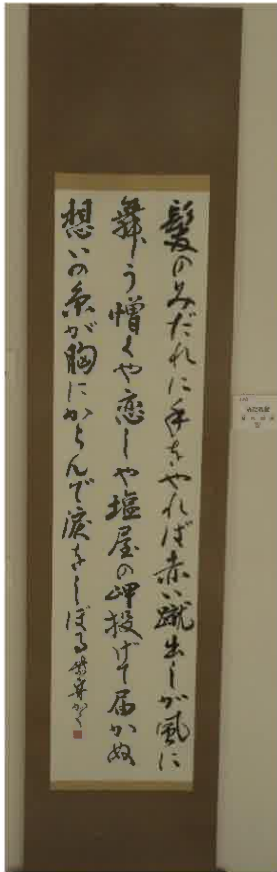 髪のみだれに手をやれば赤い蹴出しが風に
舞う憎くや恋しや塩屋の岬投げて届かぬ
想いの糸が胸にからんで涙をしぼる
みだれ髪